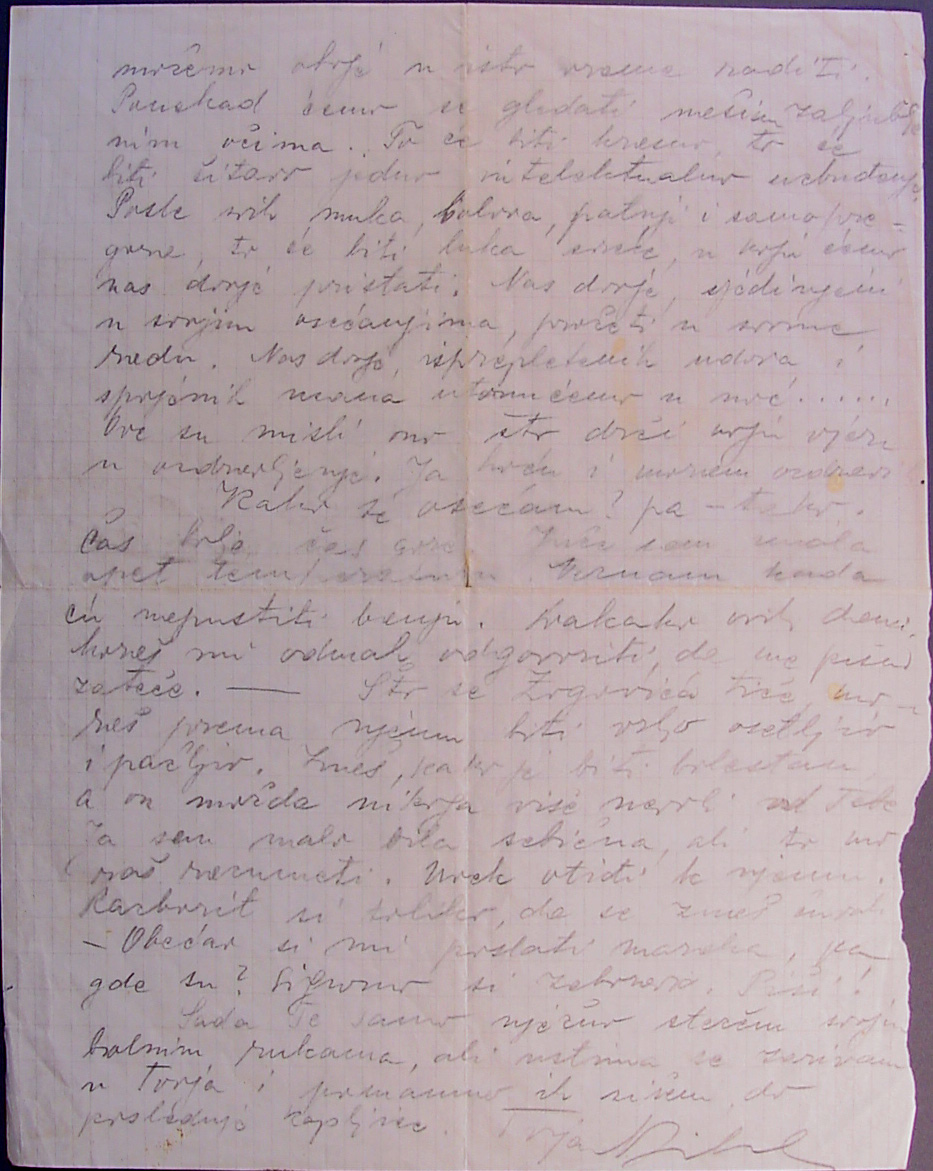 možemo obojé u isto vreme raditi.
Ponekad ćemo se gledati zaljublje
nim očima. To će biti krasno, to će
biti čitavo jedno intelektualno uzbuđenje.
Posle svih muka, bolova, patnji i samopre-
gora, to će biti luka sreće, u koju ćemo
nas dvojé pristati. Nas dvojé, sjédinjeni
u svojim osećanjima, prožeti u svome
radu. Nas dvojé, isprepletenih udova i
spojénih usana utonućemo u noć......
Ove su misli ono što drži moju vjéru
u ozdravljenjé. Ja hoću i moram ozdravi
Kako se osećam? pa - tako.
Čas bolje čas gore. Juče sam imala
opet temperaturu. Neznam kada
ću nepustiti banju. Svakako ovih dana.
Moraš mi odmah odgovoriti, da me pismo
zateče. — Što se Zogovića tiče, mo-
raš prema njemu biti vrlo osetljiv
i pažljiv. Znaš, kako je biti bolestan,
a on možda nikoga više nevoli od Tebe
Ja sam malo bila sebična, ali to mo
raš razumeti. Uvek otiđi k njemu.
Razborit si toliko, da se znaš
- Obećao si mi poslati maraka, pa
gde su? Sigurno si zaboravio. Piši!
Sada Te samo njéžno stežem svojim
bolnim rukama, ali ustima se zarivam
u Tvoja i ih do
poslednjé kapljice. Tvoja